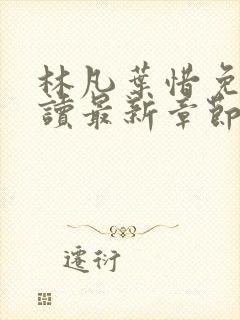 林凡葉惜免
讀最新章節
遷衍